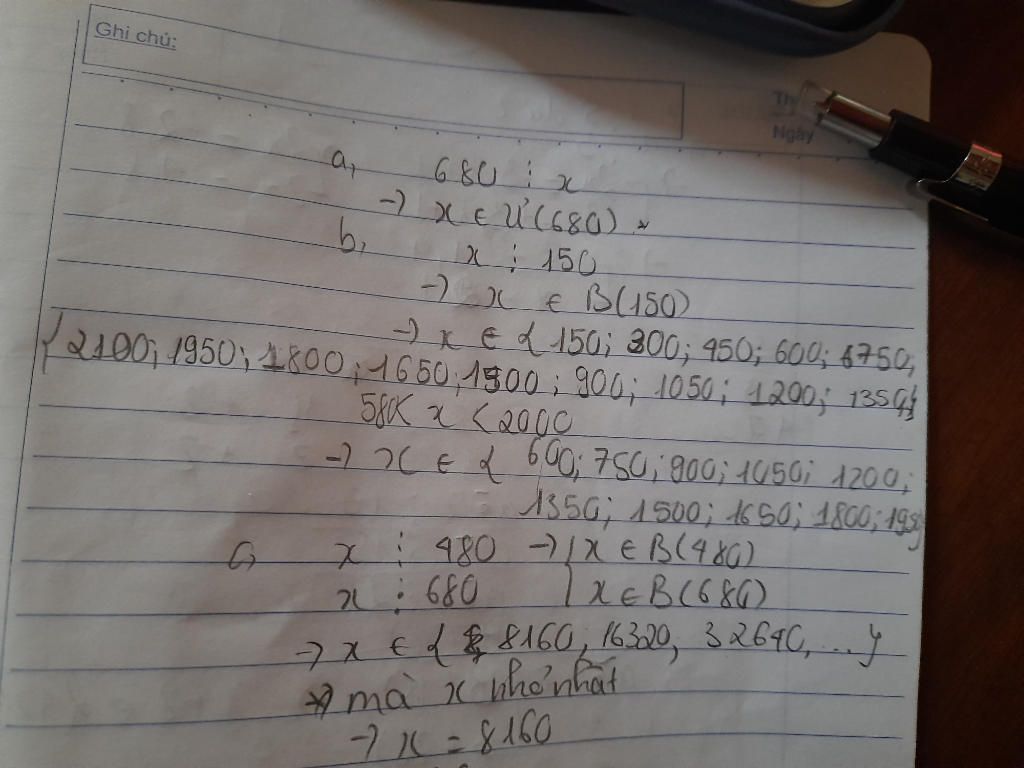 Ghi chú:
Ngày
a, 680 ⋮ x
→ x ∈ Ư(680)
b, x ⋮ 150
→ x ∈ B(150)
→ x ∈ { 150; 300; 450; 600; 750;
{2100; 1950; 1800; 1650; 1500; 900; 1050; 1200; 1350;}
580< x < 2000
→ x ∈ { 600; 750; 900; 1050; 1200;
1350; 1500; 1650; 1800; 1950}
c, x ⋮ 480 → { x ∈ B(480)
x ⋮ 680 { x ∈ B(680)
→ x ∈ { 8160, 16320, 32640, ...}
mà x nhỏ nhất
→ x = 8160